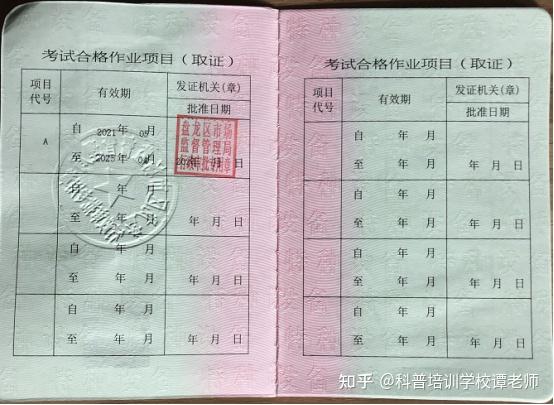 考试合格作业项目（取证）
项目代号 有效期 发证机关(章)
批准日期
A 自 2021年 05月
至 2025年 04月
盘龙区市场
监督管理局
行政审批专用章
自 年 月
至 年 月 年 月 日
自 年 月
至 年 月 年 月 日
自 年 月
至 年 月 年 月 日
考试合格作业项目（取证）
项目代号 有效期 发证机关(章)
批准日期
自 年 月
至 年 月 年 月 日
自 年 月
至 年 月 年 月 日
自 年 月
至 年 月 年 月 日
自 年 月
至 年 月 年 月 日
知乎 @科普培训学校谭老师